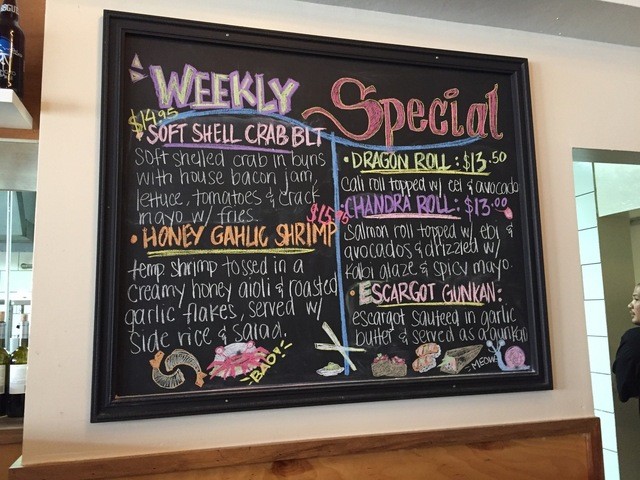 WEEKLY Special
$14.95
SOFT SHELL CRAB BLT
Soft shelled crab in buns
with house bacon jam,
lettuce, tomatoes & crack
mayo w/ fries.
$15.95
• HONEY GAHLIC SHRIMP
temp. shrimp tossed in a
creamy honey aioli & roasted
garlic flakes, served w/
side rice & salad.
BAD!
• DRAGON ROLL: $13.50
Cali roll topped w/ eel & avocado
CHANDRA ROLL: $13.00
Salmon roll topped w/ ebi &
avocados & drizzled w/
Kalbi glaze & spicy mayo.
• ESCARGOT GUNKAN:
escargot sauteed in garlic
butter & served as a gunkan
-MEOW